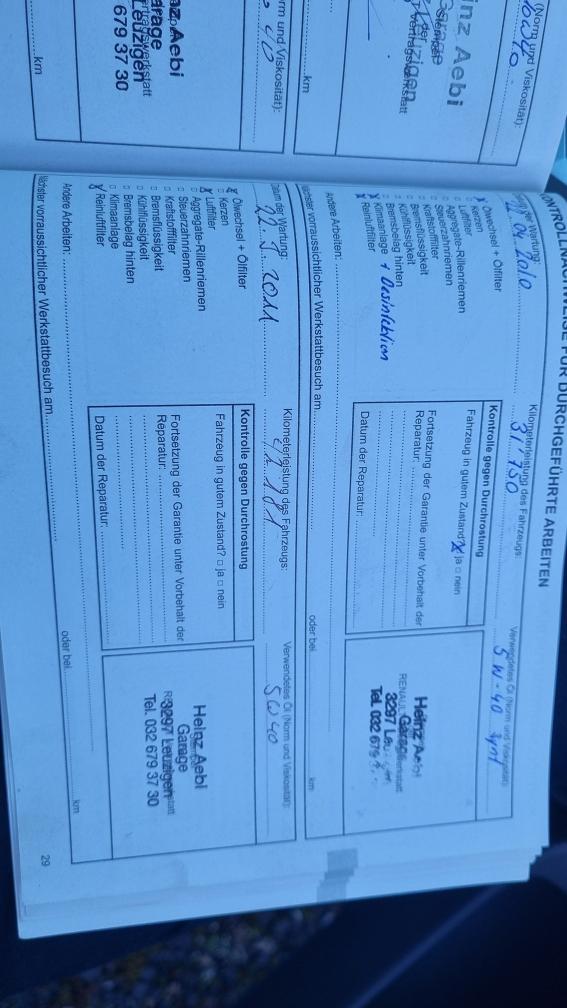 (Norm und Viskosität):
km
Heinz Aebi
Garage
Leuzigen
Vertragswerkstatt
Norm und Viskosität):
km
Heinz Aebi
Garage
Leuzigen
679 37 30
KONTROLLNACHWEISE FÜR DURCHGEFÜHRTE ARBEITEN
Datum der Wartung:
04. 2010
Kilometerleistung des Fahrzeugs:
31'750
Verwendetes Öl (Norm und Viskosität):
5W-40 synt
Ölwechsel + Ölfilter
Kerzen
Luftfilter
Aggregate-Rillenriemen
Steuerzahnriemen
Kraftstoffilter
Bremsflüssigkeit
Kühlflüssigkeit
Bremsbelag hinten
Klimaanlage + Desinfektion
Reinluftfilter
Andere Arbeiten:
Kontrolle gegen Durchrostung
Fahrzeug in gutem Zustand? ja nein
Fortsetzung der Garantie unter Vorbehalt der
Reparatur:
Datum der Reparatur:
Heinz Aebi
Garage
3297
Tel. 032 679
Nächster vorraussichtlicher Werkstattbesuch am
oder bei
km
Datum der Wartung:
22. 2011
Kilometerleistung des Fahrzeugs:
Verwendetes Öl (Norm und Viskosität):
5W40
Ölwechsel + Ölfilter
Kerzen
Luftfilter
Aggregate-Rillenriemen
Steuerzahnriemen
Kraftstoffilter
Bremsflüssigkeit
Kühlflüssigkeit
Bremsbelag hinten
Klimaanlage
Reinluftfilter
Andere Arbeiten:
Kontrolle gegen Durchrostung
Fahrzeug in gutem Zustand? ja nein
Fortsetzung der Garantie unter Vorbehalt der
Reparatur:
Datum der Reparatur:
Heinz Aebi
Garage
3297 Leuzigen
Tel. 032 679 37 30
Nächster vorraussichtlicher Werkstattbesuch am
oder bei
km
29